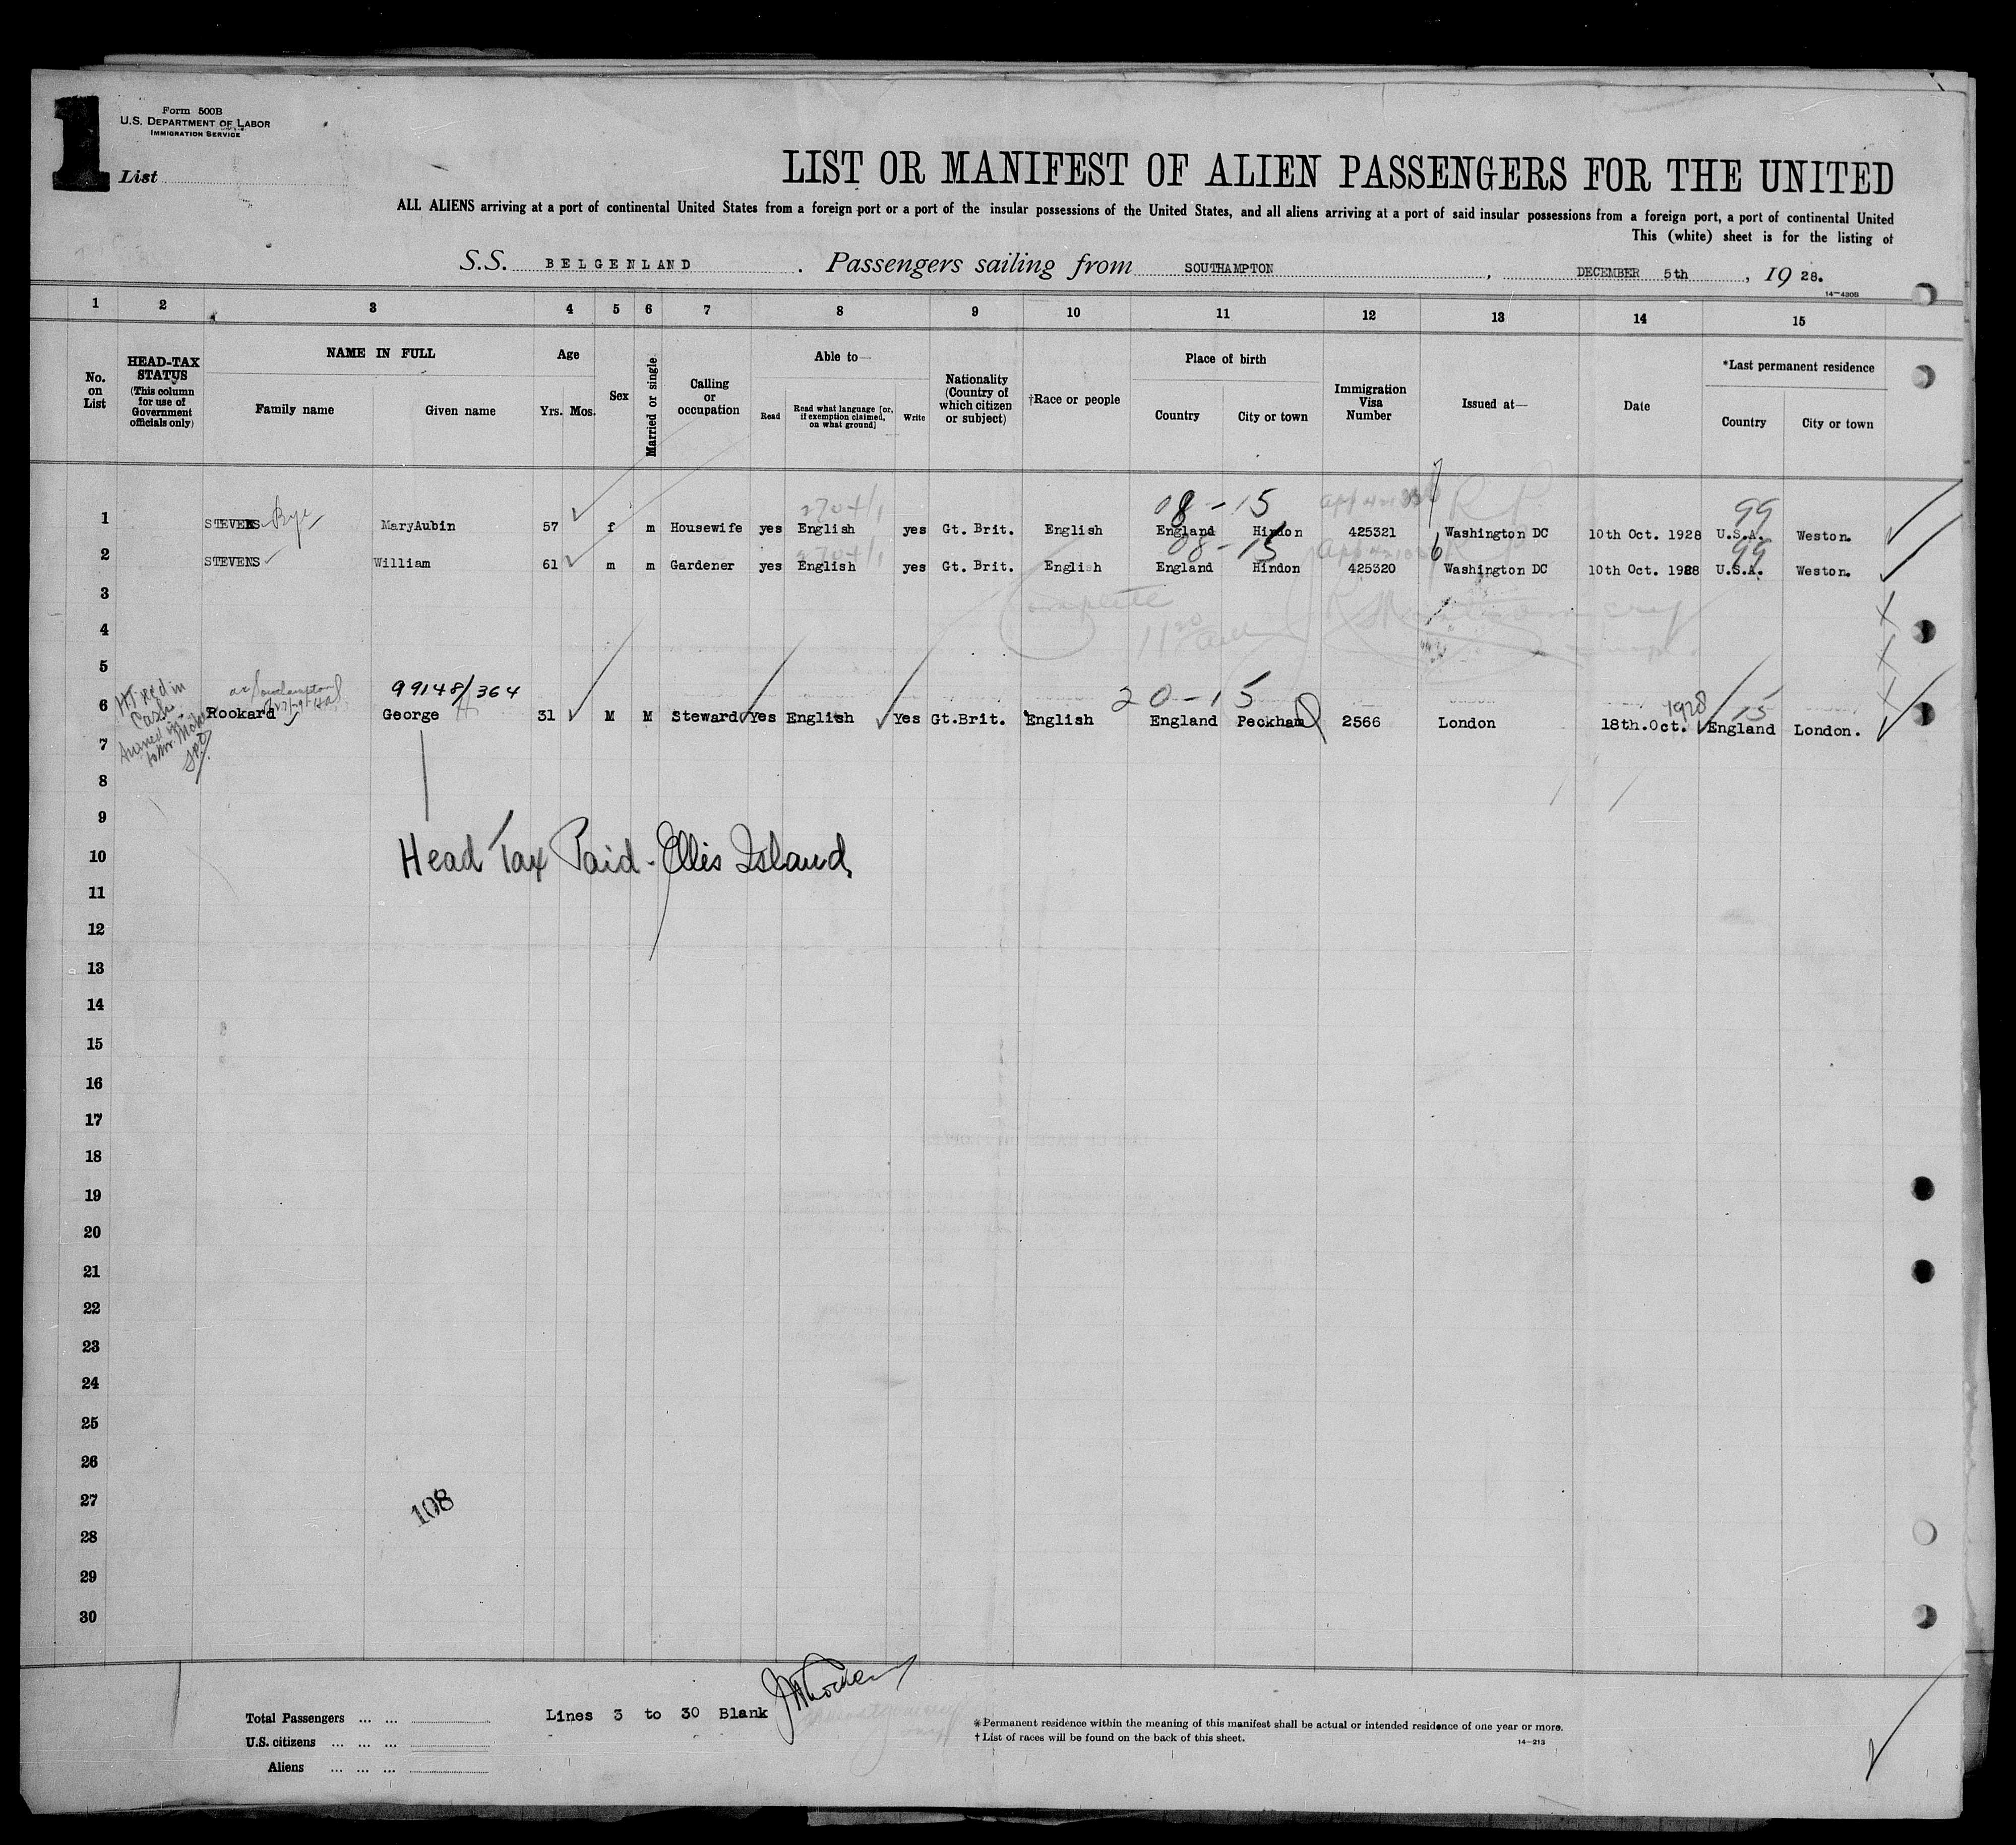 1
Form 500B
U.S. DEPARTMENT OF LABOR
IMMIGRATION SERVICE
List
LIST OR MANIFEST OF ALIEN PASSENGERS FOR THE UNITED
ALL ALIENS arriving at a port of continental United States from a foreign port or a port of the insular possessions of the United States, and all aliens arriving at a port of said insular possessions from a foreign port, a port of continental United
This (white) sheet is for the listing of
S.S. BELGENLAND . Passengers sailing from SOUTHAMPTON , DECEMBER 5th , 19 28.
14-4306
1 2 3 4 5 6 7 8 9 10 11 12 13 14 15
No. on List
HEAD-TAX STATUS (This column for use of Government officials only)
NAME IN FULL
Family name Given name
Age
Yrs. Mos.
Sex
Married or single
Calling or occupation
Able to—
Read
Read what language [or, if exemption claimed, on what ground]
Write
Nationality (Country of which citizen or subject)
†Race or people
Place of birth
Country City or town
Immigration Visa Number
Issued at—
Date
*Last permanent residence
Country City or town
2704/1 08-15 99
1 STEVENS Rye MaryAubin 57 f m Housewife yes English yes Gt. Brit. English England Hindon 425321 Washington DC 10th Oct. 1928 U.S.A. Weston.
2704/1 08-15 99
2 STEVENS William 61 m m Gardener yes English yes Gt. Brit. English England Hindon 425320 Washington DC 10th Oct. 1928 U.S.A. Weston.
3
Complete
4
5
HT red in Cash
99148/364 20-15 1928 15
6 Rookard George 31 M M Steward Yes English Yes Gt.Brit. English England Peckham 2566 London 18th.Oct. England London.
7
8
9
10 Head Tax Paid - Ellis Island
11
12
13
14
15
16
17
18
19
20
21
22
23
24
25
26
27
108
28
29
30
Total Passengers ... ...
U.S. citizens ... ... ...
Aliens ... ... ...
Lines 3 to 30 Blank
*Permanent residence within the meaning of this manifest shall be actual or intended residence of one year or more.
† List of races will be found on the back of this sheet.
14-213